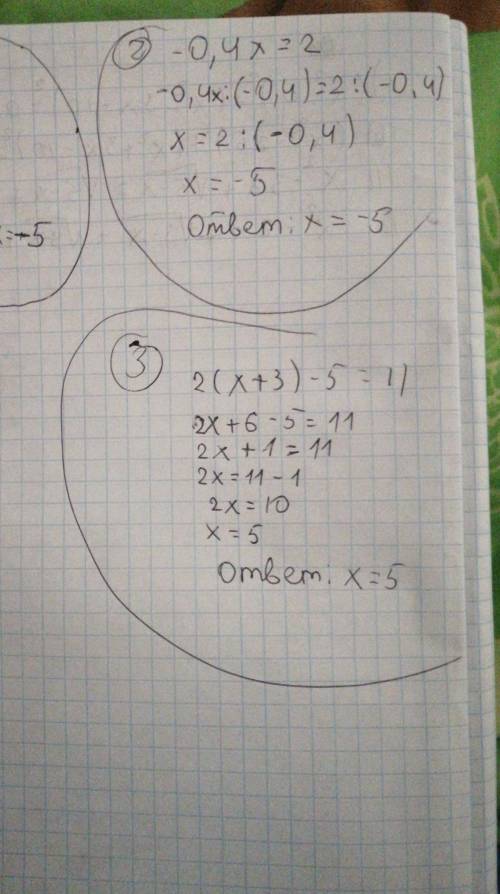 ② -0,4x=2
-0,4x:(-0,4)=2:(-0,4)
x=2:(-0,4)
x=-5
Ответ: x=-5
x=-5
③
2(x+3)-5=11
2x+6-5=11
2x+1=11
2x=11-1
2x=10
x=5
Ответ: x=5